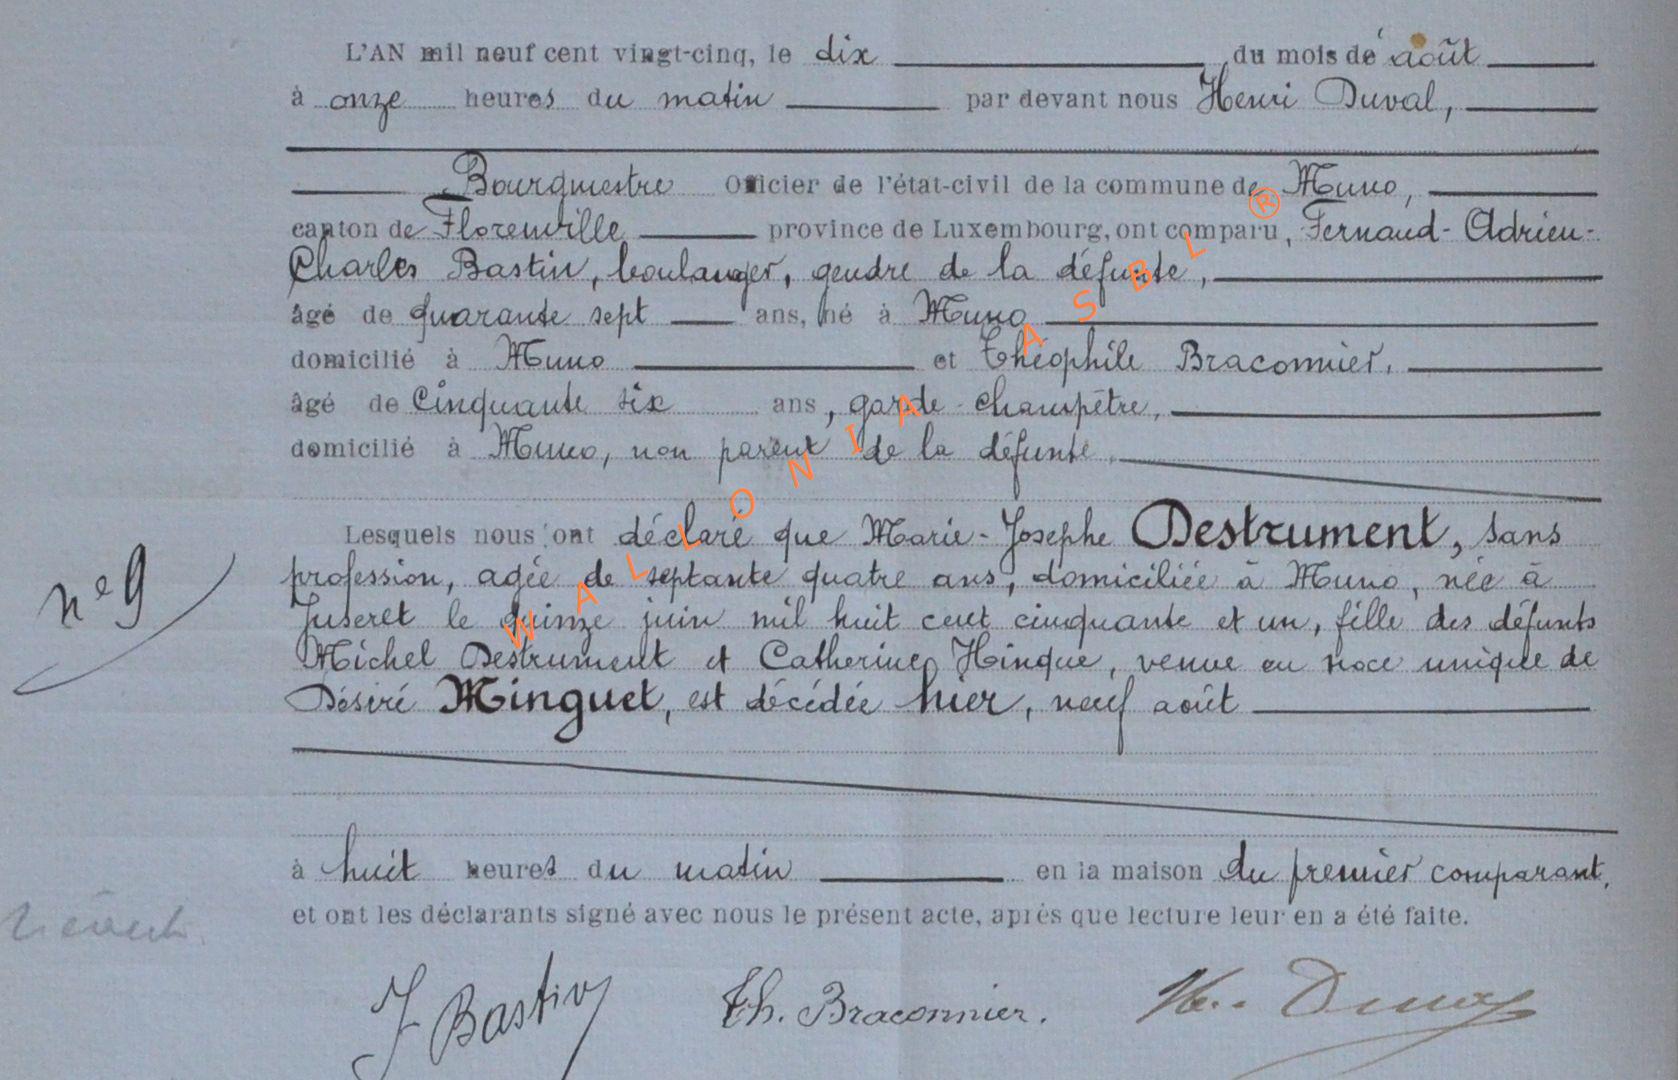 L'AN mil neuf cent vingt-cinq, le dix du mois de août
à onze heures du matin par devant nous Henri Duval,
Bourgmestre Officier de l'état-civil de la commune de Muno,
canton de Florenville province de Luxembourg, ont comparu, Fernand-Adrien-
Charles Bastin, boulanger, gendre de la défunte,
âgé de quarante sept ans, né à Muno
domicilié à Muno et Théophile Braconnier,
âgé de cinquante six ans, garde-champêtre,
domicilié à Muno, non parent de la défunte,
Lesquels nous ont déclaré que Marie-Josephe Destrument, sans
profession, agée de septante quatre ans, domiciliée à Muno, née à
Juseret le quinze juin mil huit cent cinquante et un, fille des défunts
Michel Destrument et Catherine Hinque, venue en noce unique de
Désiré Minguet, est décédée hier, neuf août
n° 9
à huit heures du matin en la maison du premier comparant,
et ont les déclarants signé avec nous le présent acte, après que lecture leur en a été faite.
F Bastin
Th. Braconnier.
Hri Duval
WALLONIA ASBL ®